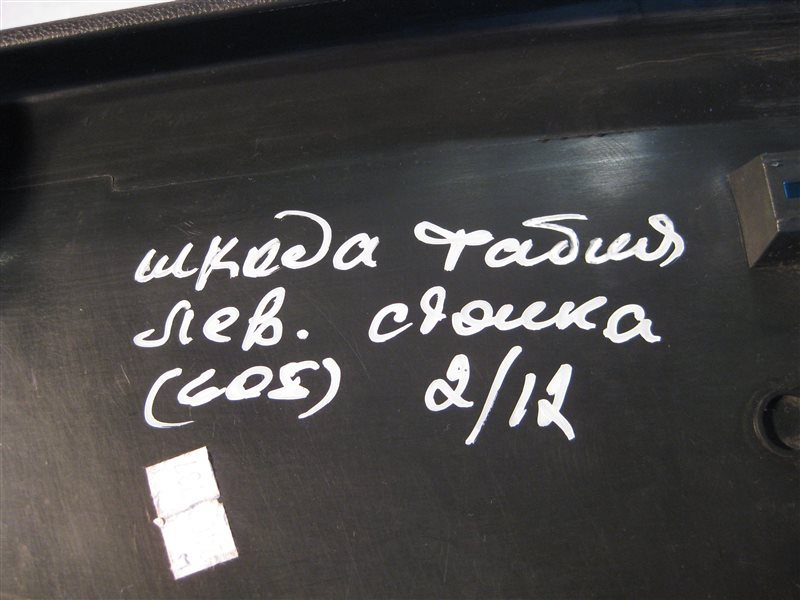 шкода фабия
лев. стойка
(605) 2/12